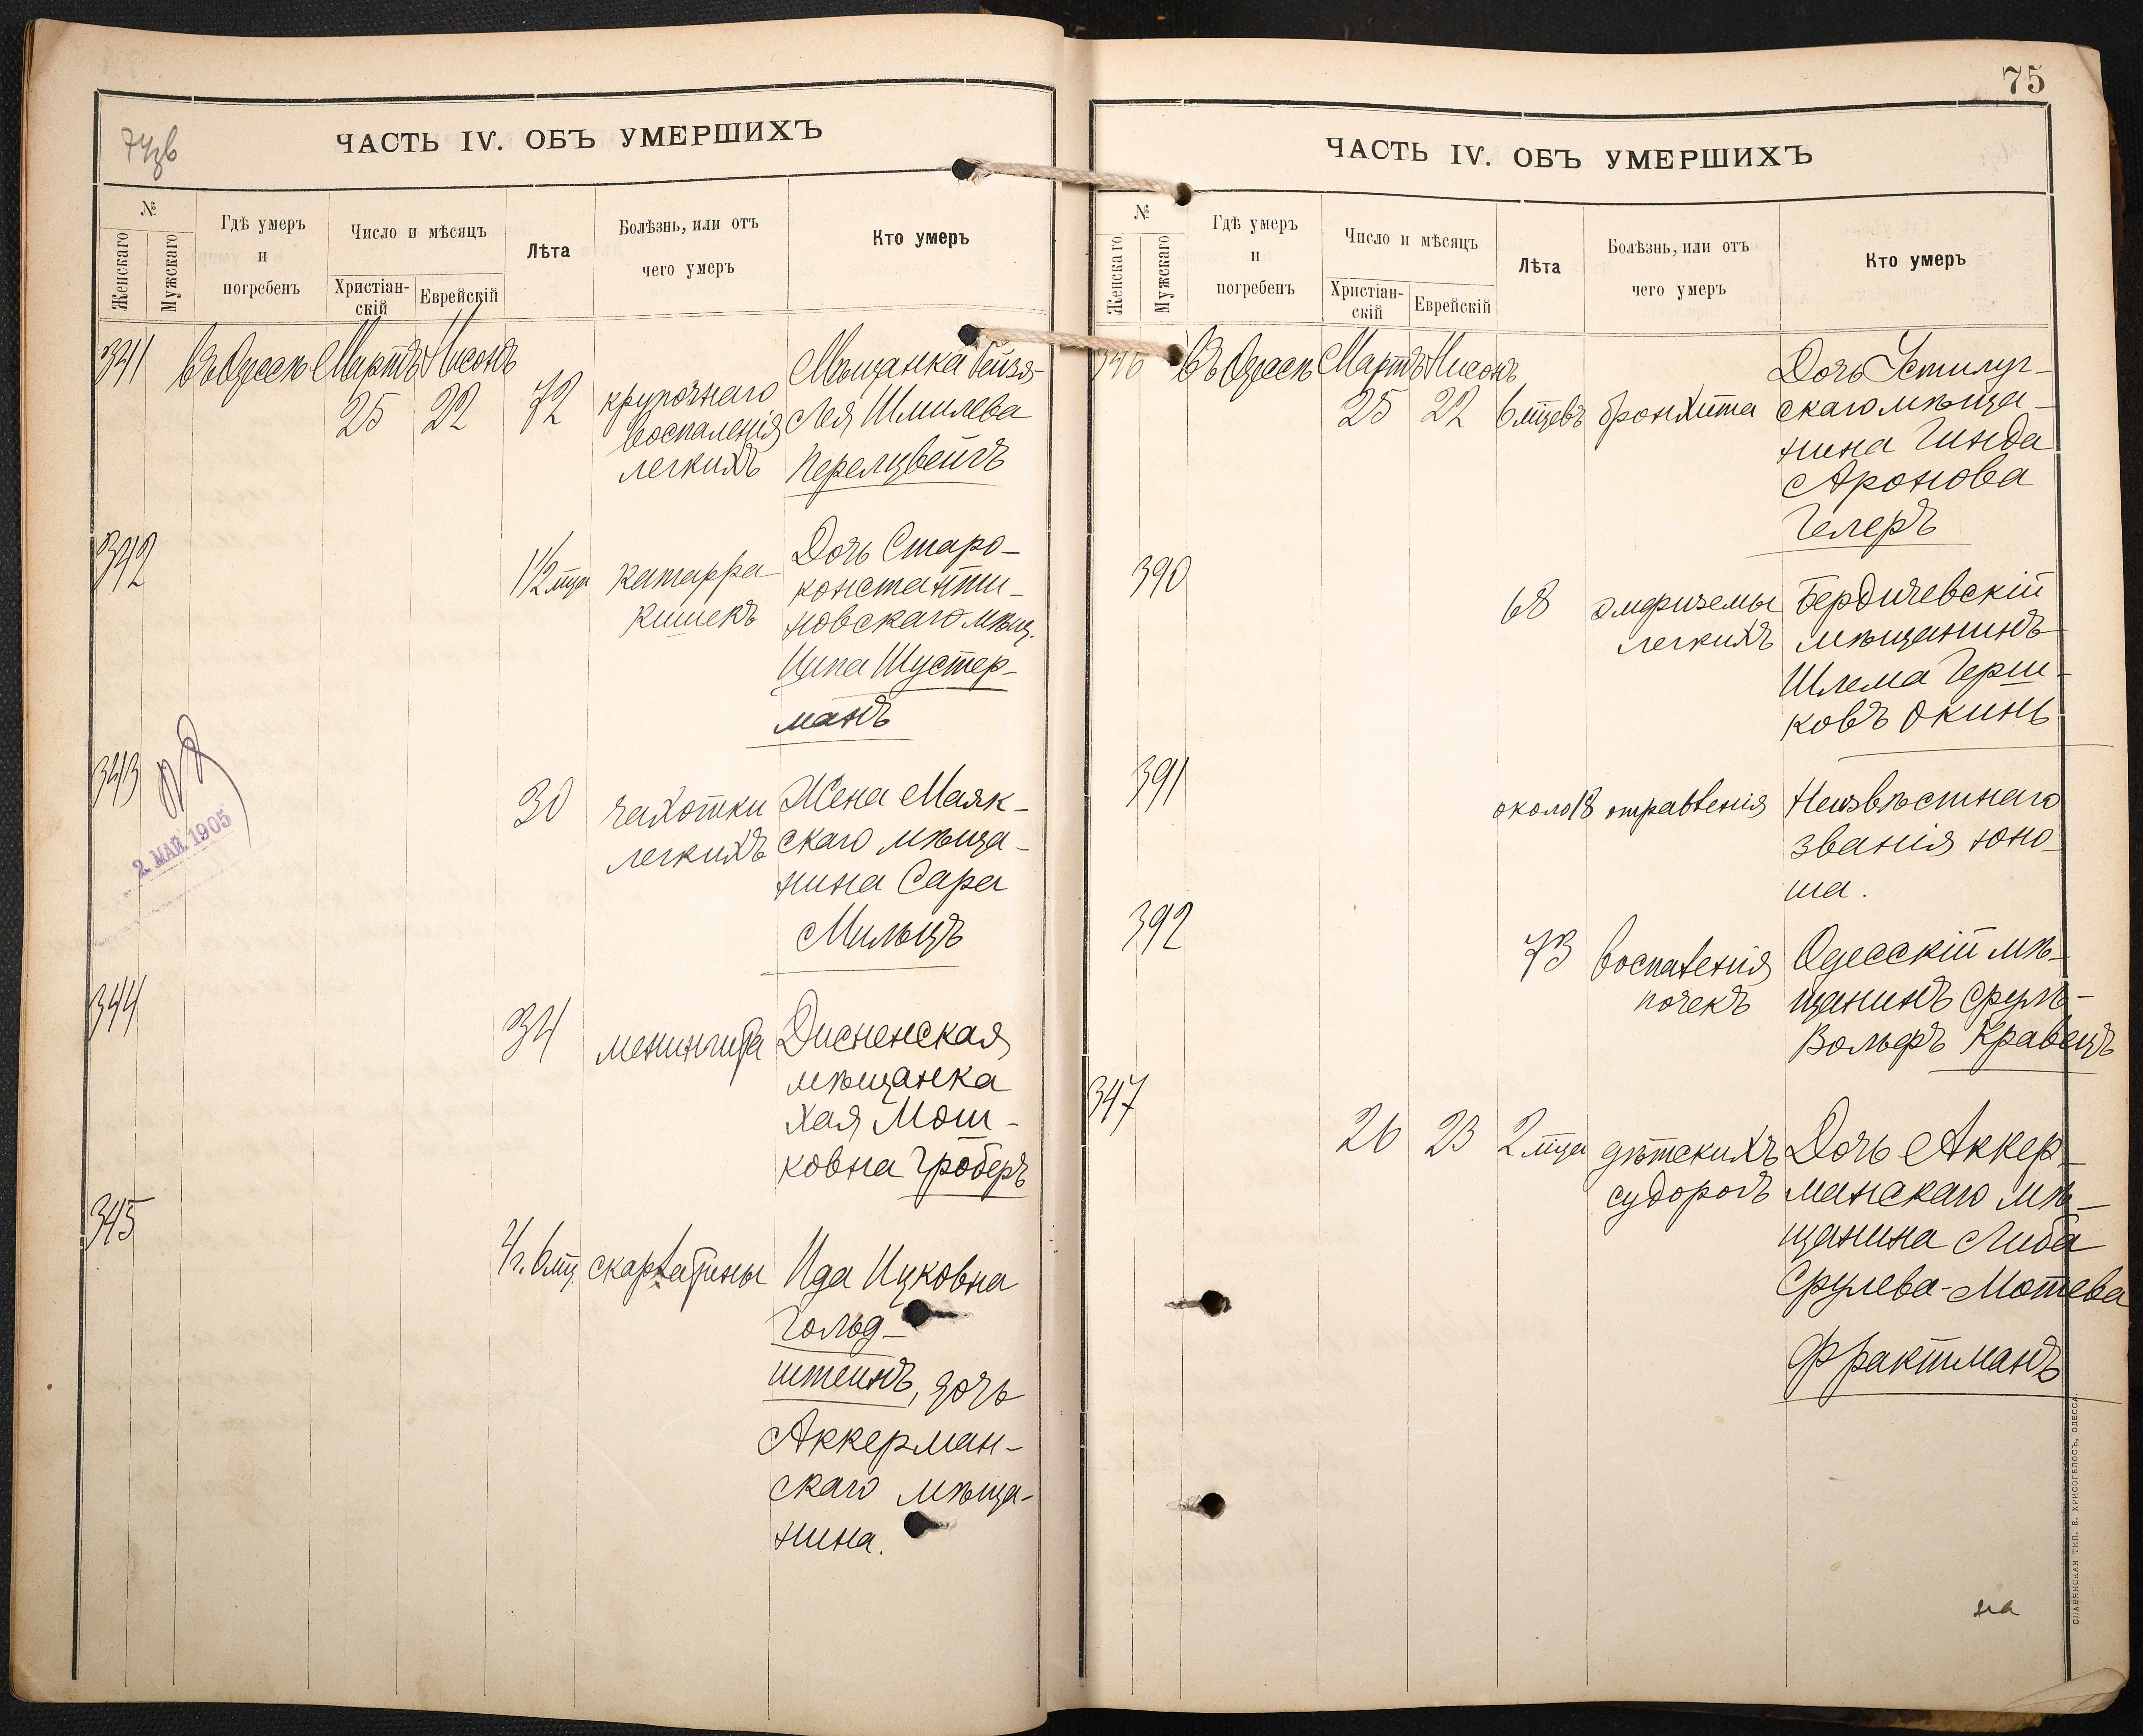 74зв
ЧАСТЬ IV. ОБЪ УМЕРШИХЪ
№
Женскаго
Мужскаго
Гдѣ умеръ
и
погребенъ
Число и мѣсяцъ
Христіан-
скій
Еврейскій
Лѣта
Болѣзнь, или отъ
чего умеръ
Кто умеръ
341
въ Одессѣ
Мартъ
Нисонъ
25
22
72
крупознаго
воспаленія
легкихъ
Мѣщанка Рейзя-
Лея Шмилева
Перелцвейгъ
342
1 1/2 мца
катарра
кишекъ
Дочь Старо-
константи-
новскаго мѣщ.
Ципа Шустер-
манъ
343
2. МАЙ. 1905
30
чахотки
легкихъ
Жена Маяк-
скаго мѣща-
нина Сара
Мильцъ
344
34
менингита
Дисненская
мѣщанка
Хая Мош-
ковна Гроберъ
345
скарлатины
Ида Ицковна
Гольд-
штейнъ, дочь
Аккерман-
скаго мѣща-
нина.
75
ЧАСТЬ IV. ОБЪ УМЕРШИХЪ
№
Женскаго
Мужскаго
Гдѣ умеръ
и
погребенъ
Число и мѣсяцъ
Христіан-
скій
Еврейскій
Лѣта
Болѣзнь, или отъ
чего умеръ
Кто умеръ
346
Въ Одессѣ
Мартъ
Нисонъ
25
22
6 мцевъ
бронхита
Дочь Устилуг-
скаго мѣща-
нина Гинда
Аронова
Гелеръ
390
68
эмфиземы
легкихъ
Бердичевскій
мѣщанинъ
Шлема Герш-
ковъ Окинь
391
около 18
отравленія
Неизвѣстнаго
званія юно-
ша.
392
73
воспаленія
почекъ
Одесскій мѣ-
щанинъ Сруль-
Вольфъ Кравецъ
347
26
23
2 мца
дѣтскихъ
судорогъ
Дочь Аккер-
манскаго мѣ-
щанина Либа
Срулева-Мотева
Фрактманъ
на
СЛАВЯНСКАЯ ТИП. Е. ХРИСОГЕЛОСЪ, ОДЕССА.